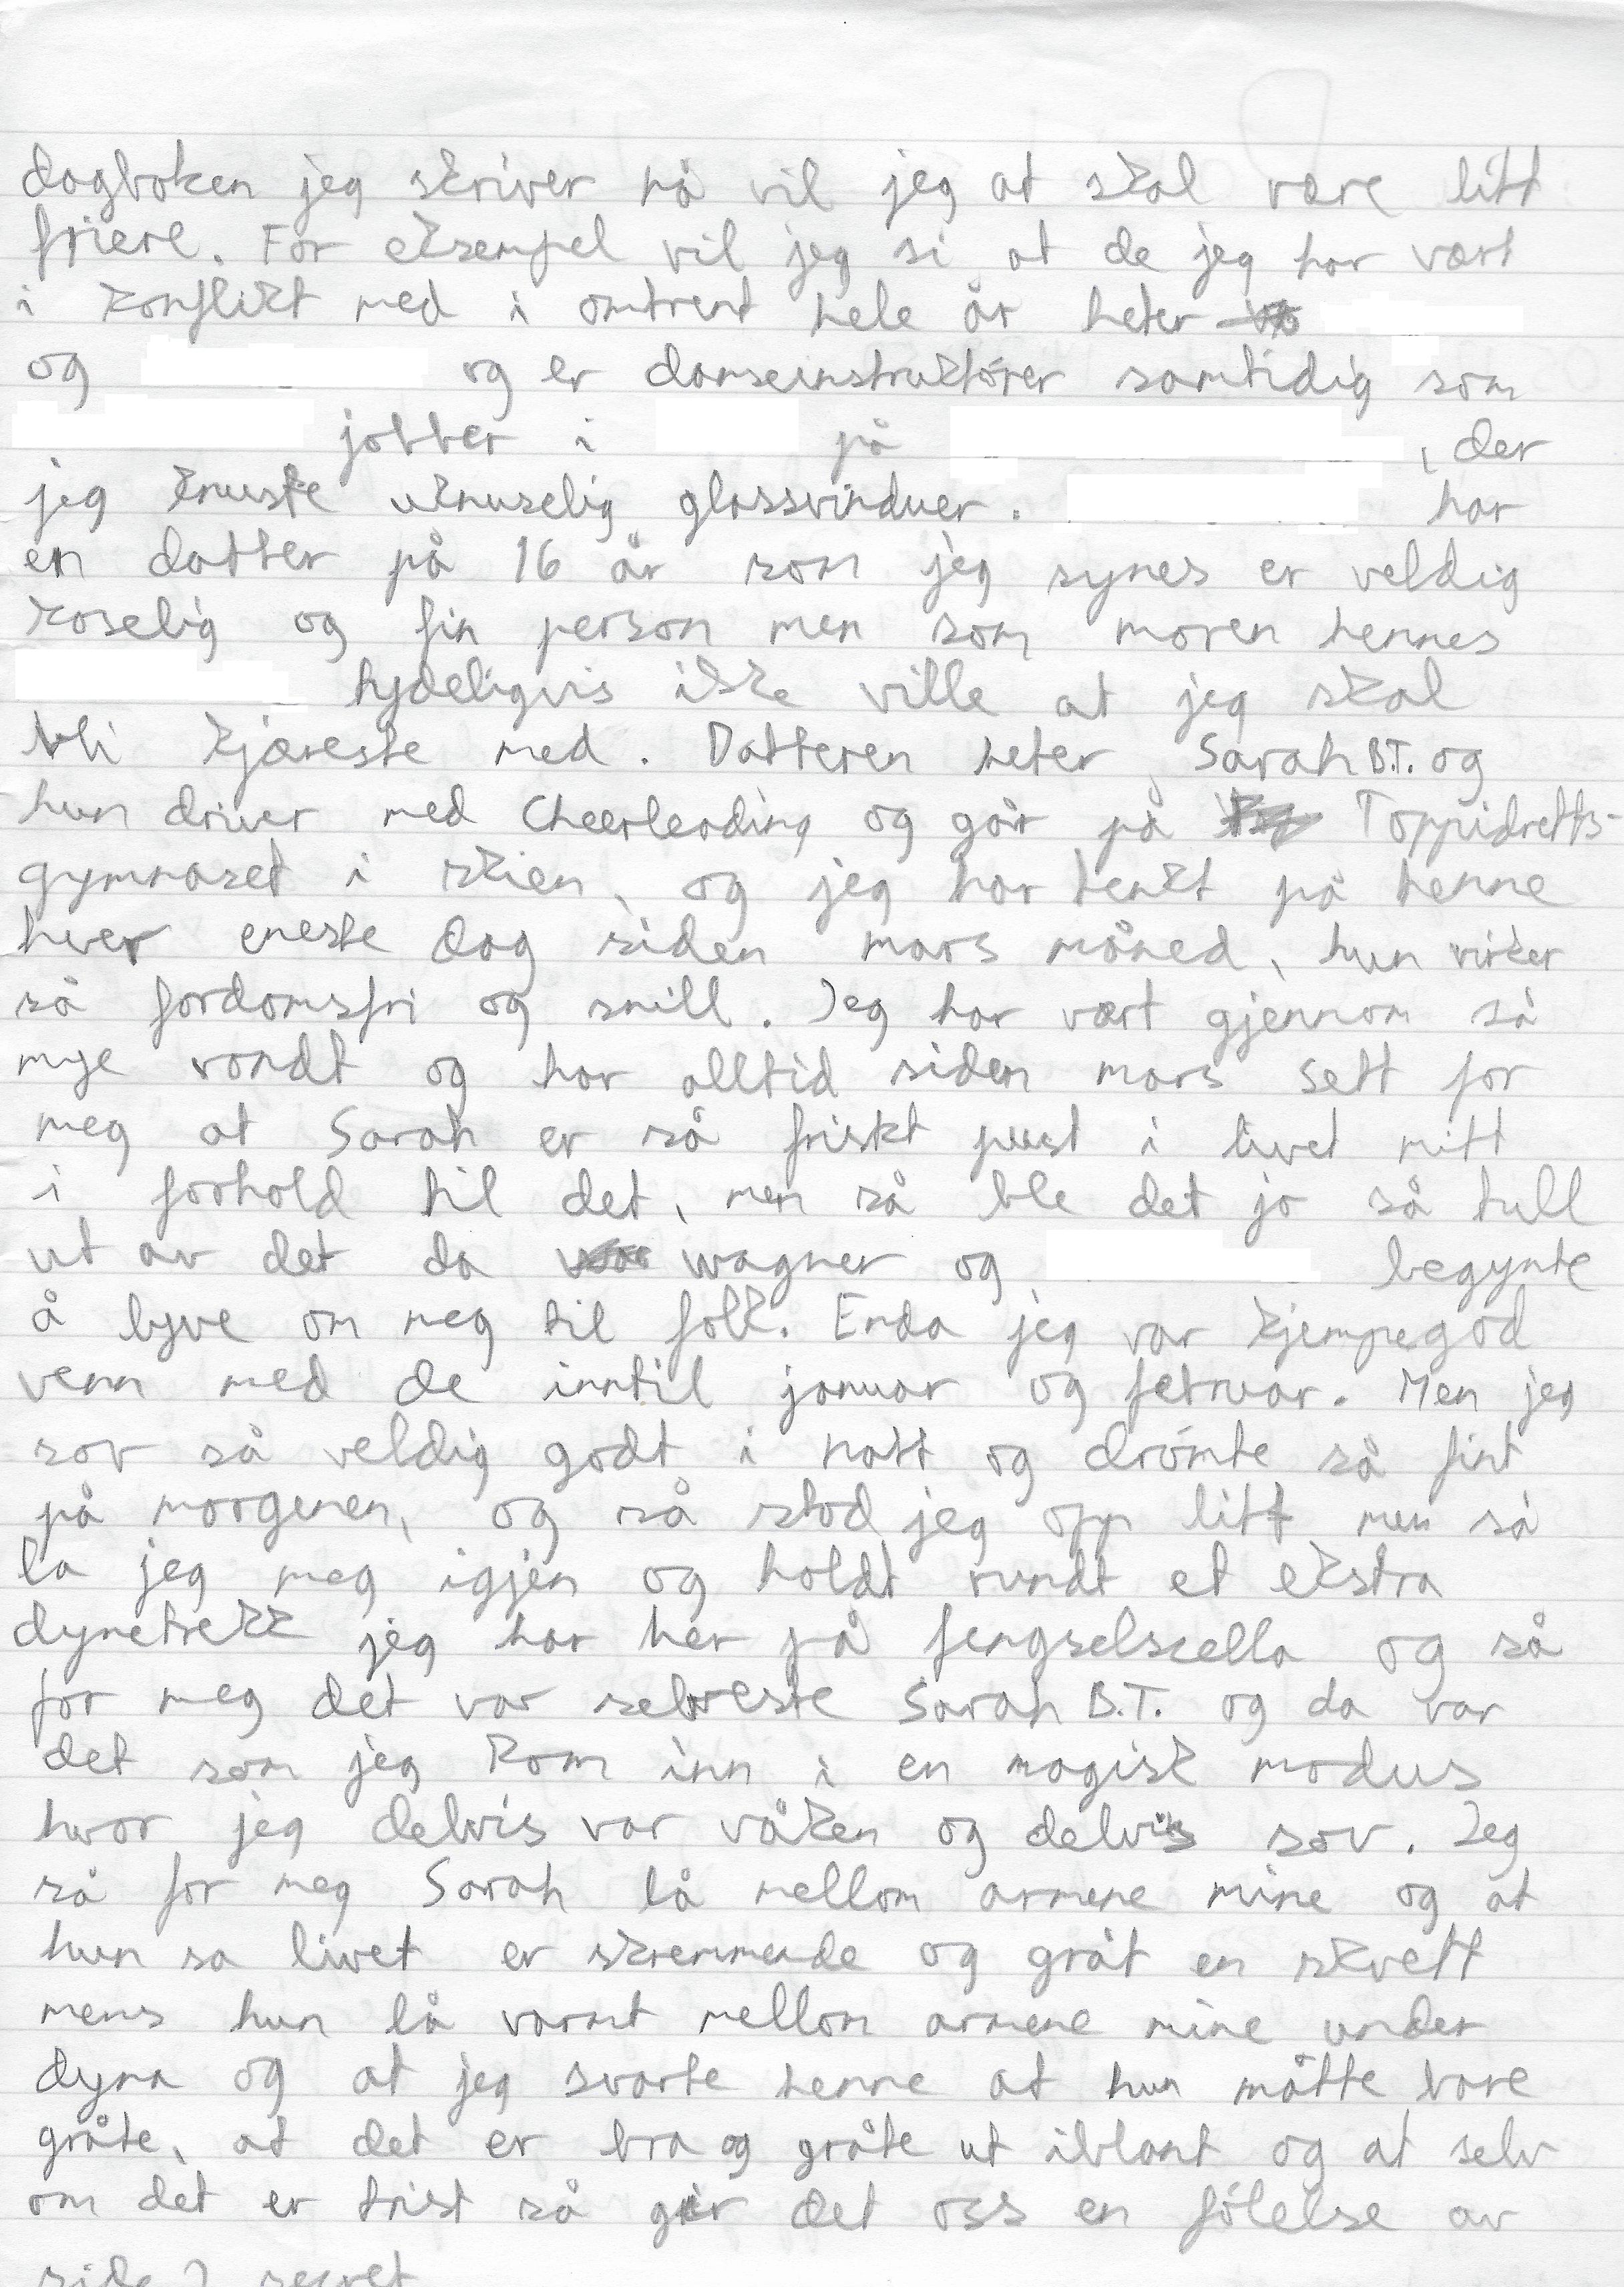 dagboken jeg skriver nå vil jeg at skal være litt
friere. For eksempel vil jeg si at de jeg har vært
i konflikt med i omtrent hele år heter
og og er danseinstruktører samtidig som
jobber i på , der
jeg knuste uknuselig glassvinduer. har
en datter på 16 år som jeg synes er veldig
koselig og fin person men som moren hennes
tydeligvis ikke ville at jeg skal
bli kjæreste med. Datteren heter Sarah B.T. og
hun driver med Cheerleading og går på Toppidretts-
gymnaset i skien, og jeg har tenkt på henne
hver eneste dag siden mars måned, hun virker
så fordomsfri og snill. Jeg har vært gjennom så
mye vondt og har alltid siden mars sett for
meg at Sarah er så friskt pust i livet mitt
i forhold til det, men så ble det jo så tull
ut av det da wagner og begynte
å lyve om meg til folk. Enda jeg var kjempegod
venn med de inntil januar og februar. Men jeg
sov så veldig godt i natt og drømte så fint
på morgenen, og så stod jeg opp litt men så
la jeg meg igjen og holdt rundt et ekstra
dynetrekk jeg har her på fengselscella og så
for meg det var selveste Sarah B.T. og da var
det som jeg kom inn i en magisk modus
hvor jeg delvis var våken og delvis sov. Jeg
så for meg Sarah lå mellom armene mine og at
hun sa livet er skremmende og gråt en skvett
mens hun lå varmt mellom armene mine under
dyna og at jeg svarte henne at hun måtte bare
gråte, at det er bra og gråte ut iblant og at selv
om det er trist så gir det oss en følelse av